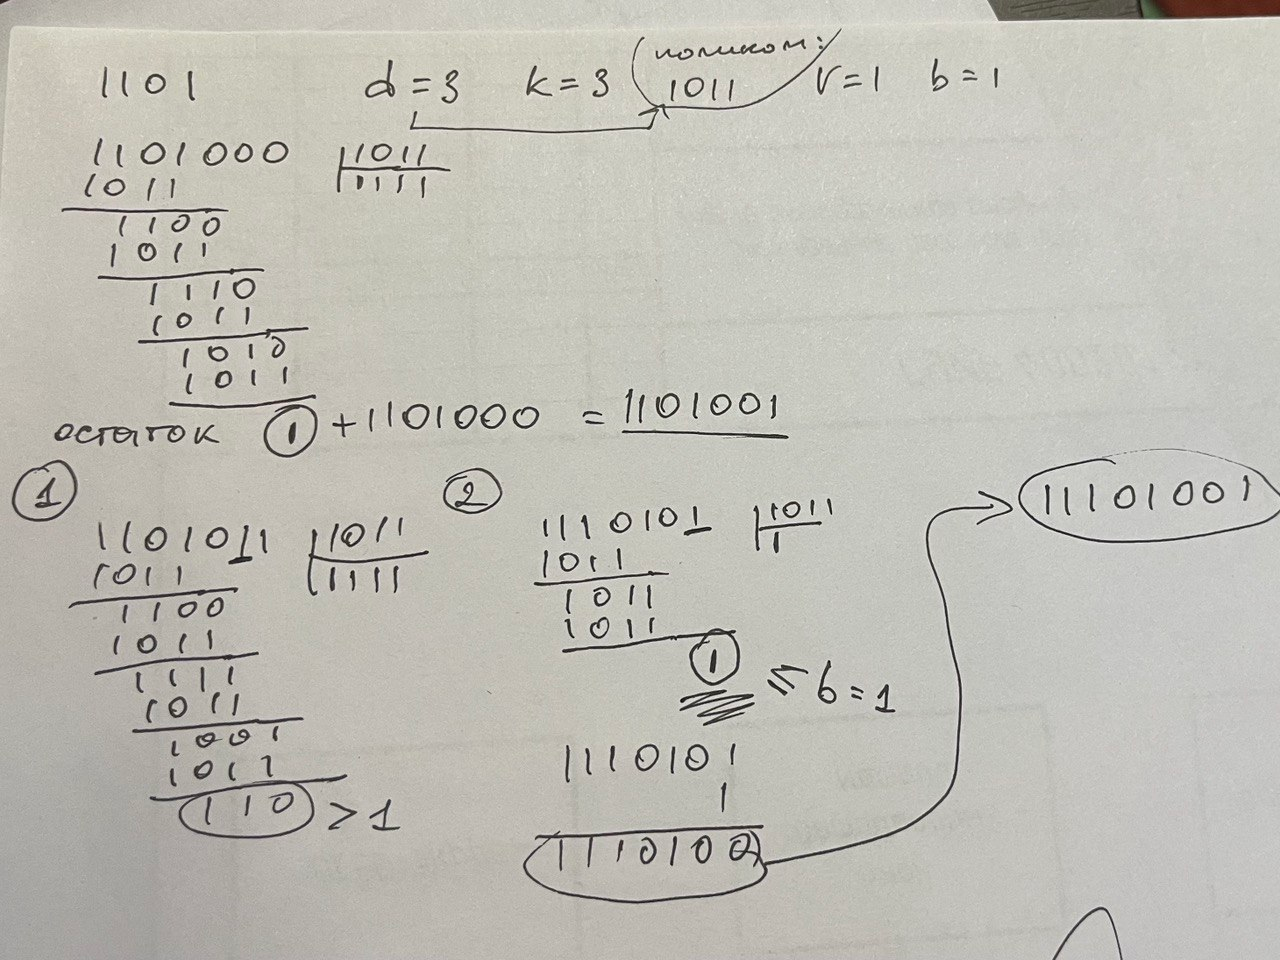 1101 d = 3 k = 3 (полином: 1011) r = 1 b = 1
1101000 1011
1011 1111
1100
1011
1110
1011
1010
1011
остаток 1 + 1101000 = 1101001
1
1101011 1011
1011 1111
1100
1011
1111
1011
1001
1011
110 > 1
2
1110101 1011
1011 1
1011
1011
1 ≤ b = 1
1110101
1
1110100
11101001